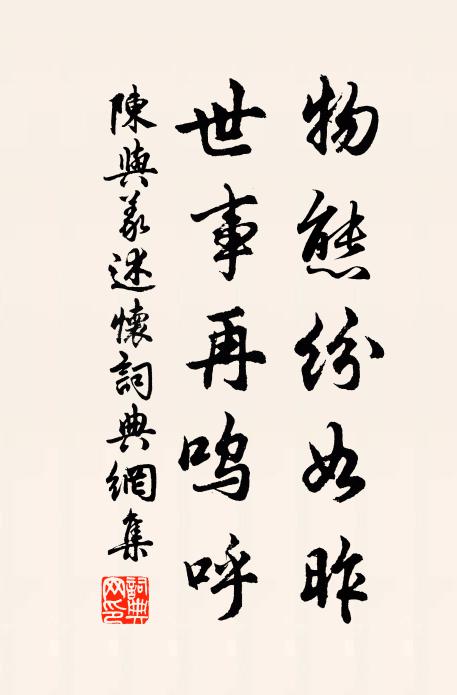 物態紛如昨
世事再嗚呼
陳與義述懷詞典網集
詞典網印